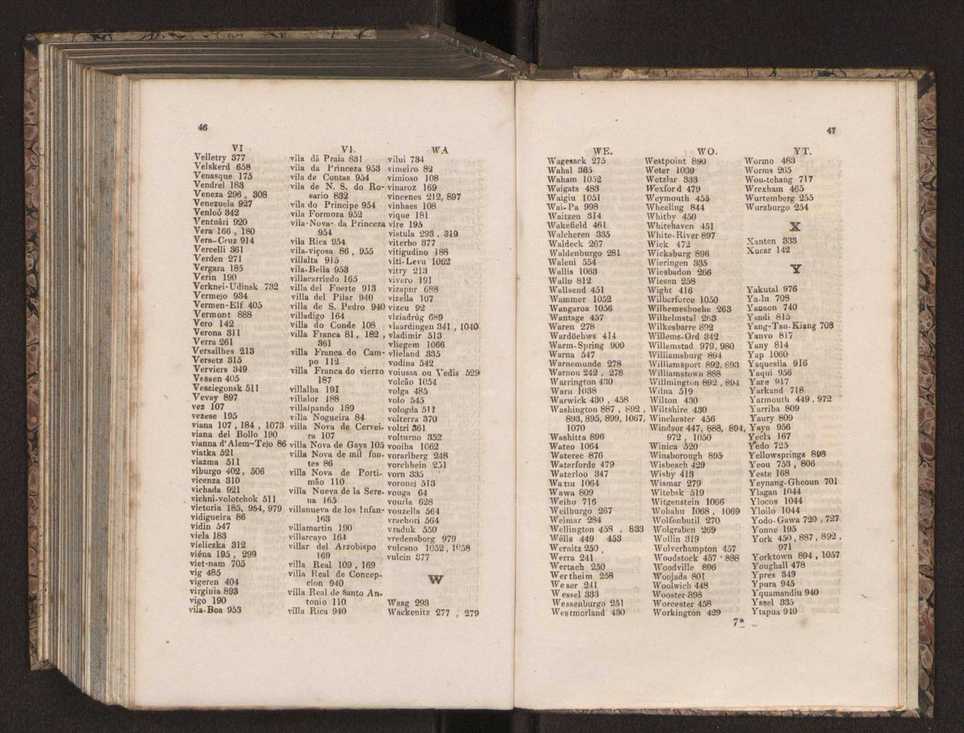 46
VI
Velletry 377
Velskerd 658
Venasque 175
Vendrel 183
Veneza 296 , 308
Venezuela 927
Venloó 342
Ventuári 920
Vera 166 , 180
Vera-Cruz 914
Vercelli 361
Verden 271
Vergara 185
Verin 190
Verknei-Udinsk 732
Vermejo 934
Vermen-Elf 405
Vermont 888
Vero 142
Verona 311
Verra 261
Versailhes 213
Versetz 315
Verviers 349
Vessen 405
Vesziegonsk 511
Vevay 897
vez 107
vezese 195
viana 107 , 184 , 1073
viana del Bollo 190
vianna d'Alem-Tejo 86
viatka 521
viazma 511
viburgo 402, 506
vicenza 310
vichada 921
vichni-volotchok 511
victoria 185, 954, 979
vidigueira 86
vidin 547
viela 183
vieliczka 312
viéna 195 , 299
viet-nam 705
vig 485
vigeren 404
virginia 893
vigo 190
vila-Boa 953
VI.
vila dá Praia 831
vila da Princeza 953
vila de Contas 954
vila de N. S. do Ro-
sario 832
vila do Principe 954
vila Formoza 952
vila-Nova- da Princeza
954
vila Rica 954
vila-viçosa 86 , 955
villalta 915
vila-Bella 953
villacarriedo 165
villa del Fuerte 913
villa del Pilar 940
villa de S. Pedro 940
villadigo 164
villa do Conde 108
villa Franca 81 , 182 ,
361
villa Franca do Cam-
po 112
villa Franca do vierzo
187
villalba 191
villalor 188
villalpando 189
villa Nogueira 84
villa Nova de Cervei-
ra 107
villa Nova de Gaya 105
villa Nova de mil fon-
tes 86
villa Nova de Porti-
mão 110
villa Nueva de la Sere-
na 165
villanueva de los Infan-
163
villamartin 190
villarcayo 164
villar del Arzobispo
169
villa Real 109 , 169
villa Real de Concep-
cion 940
villa Real de Santo An-
tonio 110
villa Rica 940
WA
vilui 734
vimeiro 82
vimioso 108
vinaroz 169
vincenes 212, 897
vinhaes 108
vique 181
vire 195
vistula 293 , 319
viterbo 377
vitigudino 188
viti-Levu 1062
vitry 213
vivero 191
vizapur 688
vizella 107
vizeu 92
vlziadrúg 689
vlaardingen 341 , 1040
vladimir 513
vliegem 1066
vlieland 335
vodina 542
voiussa ou Vedis 529
volcão 1054
volga 485
volo 545
vologda 511
volterra 370
voltri 361
volturno 352
vooiha 1062
vorarlberg 248
vorchhein 251
vorn 335
voronej 513
vouga 64
vourla 628
vouzella 564
vrachori 564
vraduk 550
vredensborg 979
vulcano 1052 , 1058
vulcin 377
W
Waag 293
Wackenitz 277 , 279
47
WE.
Wagesack 275
Wahal 365
Waham 1052
Waigats 483
Waigiu 1051
Wai-Pa 998
Waitzen 314
Wakefield 461
Walcheren 335
Waldeck 267
Waldenburgo 281
Waleni 554
Wallis 1063
Wallo 812
Wallsend 451
Wammer 1052
Wangaroa 1056
Wantage 457
Waren 278
Wardöehws 414
Warm-Spring 900
Warna 547
Warnemunde 278
Warnou 242 , 278
Warrington 430
Waru 1038
Warwick 430 , 458
Washington 887 , 892 ,
893, 895, 899, 1067,
1070
Washitta 896
Wateo 1064
Wateree 876
Waterforde 479
Waterloo 347
Watiu 1064
Wawa 809
Weiho 716
Weilburgo 267
Weimar 284
Wellington 458 , 833
Wells 449 453
Wernitz 250 ,
Werra 241
Wertach 250
Wertheim 258
Weser 241
Wessel 333
Wessenburgo 251
Westmorland 430
WO.
Westpoint 890
Weter 1039
Wetzlar 333
Wexford 479
Weymouth 455
Wheeling 844
Whitby 450
Whitehaven 451
White-River 897
Wick 472
Wicksburg 896
Wieringen 335
Wiesbadon 266
Wiesen 258
Wight 416
Wilberforce 1050
Wilhemeshoehe 263
Wilhelmstal 263
Wilkesbarre 892
Willems-Ord 342
Willemstad 979, 980
Williamsburg 894
Williamsport 892, 893
Williamstown 888
Willmington 892 , 894
Wilna 519
Wilton 430
Wiltshire 430
Winchester 456
Windsor 447, 888, 894,
972 , 1050
Winica 520
Winsborough 895
Wisbeach 429
Wisby 413
Wismar 279
Witebsk 519
Witgenstein 1066
Wohahu 1068 , 1069
Wolfenbutil 270
Wolgraben 269
Wollin 319
Wolverhampton 457
Woodstock 457 888
Woodville 896
Woojada 801
Woolwich 448
Wooster 898
Worcester 458
Workington 429
7*
YT.
Wormo 483
Worms 265
Wou-tchang 717
Wrexham 465
Wurtemberg 255
Wurzburgo 254
X
Xanten 333
Xucar 142
Y
Yakutal 976
Ya-lu 708
Yanaon 740
Yandi 815
Yang-Tsu-Kiang 708
Yanvo 817
Yany 814
Yap 1060
Yaquesila 916
Yaqui 956
Yare 917
Yarkand 718
Yarmouth 449, 972
Yarriba 809
Yaury 809
Yayo 956
Yecla 167
Yedo 725
Yellowsprings 898
Yeou 753 , 806
Yeste 168
Yeynang-Gheoun 701
Ylagan 1044
Ylocos 1044
Yloilo 1044
Yodo-Gawa 720 , 727
Yonne 195
York 450 , 887 , 892 ,
971
Yorktown 894 , 1057
Youghall 478
Ypres 349
Ypura 945
Yquamandiu 940
Yssel 335
Ytapua 940